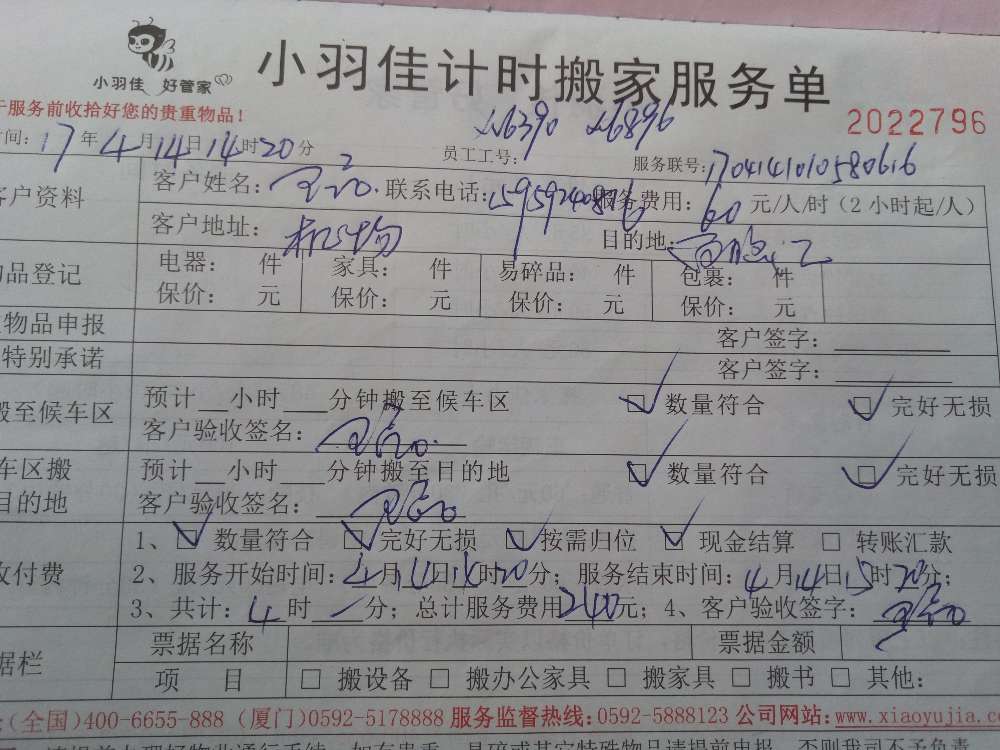 小羽佳 好管家
小羽佳计时搬家服务单
于服务前收拾好您的贵重物品!
x6390 x6896
2022796
时间: 17年4月14日14时20分 员工工号: 服务联号: 1704141010580616
客户资料 客户姓名: 联系电话: 服务费用: 60元/人/时(2小时起/人)
客户地址: 机场 目的地:
物品登记 电器: 件 家具: 件 易碎品: 件 包裹: 件
保价: 元 保价: 元 保价: 元 保价: 元
物品申报 客户签字:
特别承诺 客户签字:
搬至候车区 预计__小时___分钟搬至候车区 数量符合 完好无损
客户验收签名:
车区搬 预计__小时___分钟搬至目的地 数量符合 完好无损
目的地 客户验收签名:
收付费 1、☑数量符合 ☑完好无损 ☑按需归位 ☑现金结算 □转账汇款
2、服务开始时间: 4月14日14时20分; 服务结束时间: 4月14日15时20分;
3、共计: 4时 分; 总计服务费用240元; 4、客户验收签字:
据栏 票据名称 票据金额
项 目 □搬设备 □搬办公家具 □搬家具 □搬书 □其他:
(全国)400-6655-888 (厦门)0592-5178888 服务监督热线: 0592-5888123 公司网站: www.xiaoyujia.co